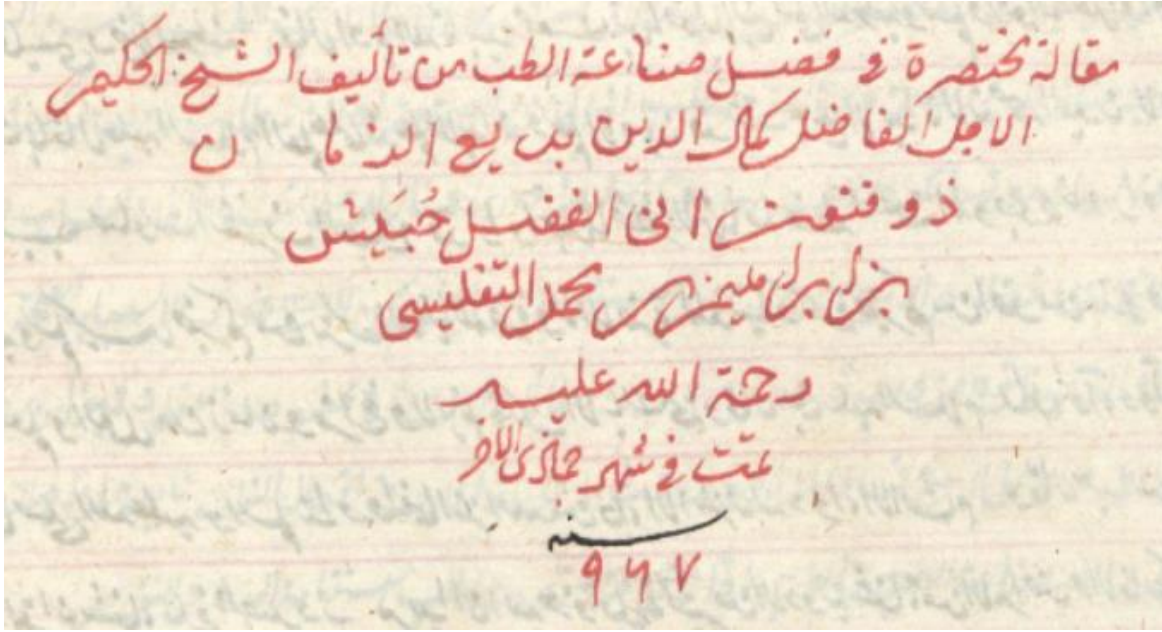 مقالة مختصرة في فضل صناعة الطب من تأليف الشيخ الحكيم
الاجل الفاضل كمال الدين بديع الزمان
ذو فنون ابى الفضل حُبَيش
بن ابراهيم بن محمد التفليسى
رحمة الله عليه
تمت في شهر جمادى الاخر
سنه
٩٦٧